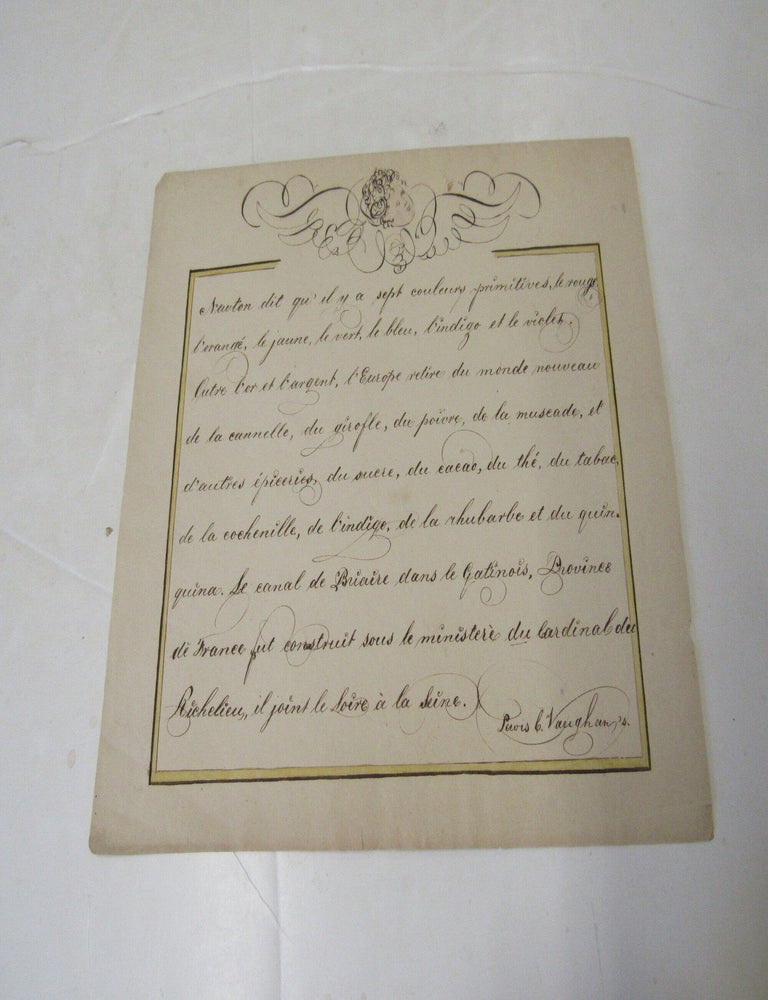 Nauton dit qu'il y a sept couleurs primitives, le rouge,
l'orangé, le jaune, le vert, le bleu, l'indigo et le violet.
Outre l'or et l'argent, l'Europe retire du monde nouveau
de la cannelle, du girofle, du poivre, de la muscade, et
d'autres épiceries, du sucre, du cacao, du thé, du tabac,
de la cochenille, de l'indige, de la rhubarbe et du quin-
quina. Le canal de Briaire dans le Gatinois, Province
de France fut construit sous le ministere du Cardinal de
Richelieu, il joint le Loire à la Seine.
C. Vaughan,s.